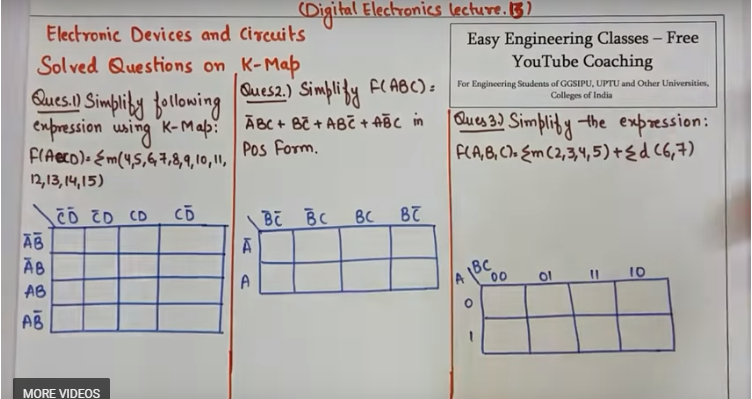 (Digital Electronics Lecture.13)
Electronic Devices and Circuits
Solved Questions on K-Map
Easy Engineering Classes – Free
YouTube Coaching
For Engineering Students of GGSIPU, UPTU and Other Universities,
Colleges of India
Ques.1) Simplify following
expression using K-Map:
F(ABCD)=Σm(4,5,6,7,8,9,10,11,
12,13,14,15)
C̄D̄ C̄D CD CD̄
ĀB̄
ĀB
AB
AB̄
Ques2.) Simplify F(ABC)=
ĀBC + BC̄ + ABC̄ + AB̄C in
POS Form.
B̄C̄ B̄C BC BC̄
Ā
A
Ques3.) Simplify the expression:
F(A,B,C)=Σm(2,3,4,5)+Σd(6,7)
A BC 00 01 11 10
0
1
MORE VIDEOS